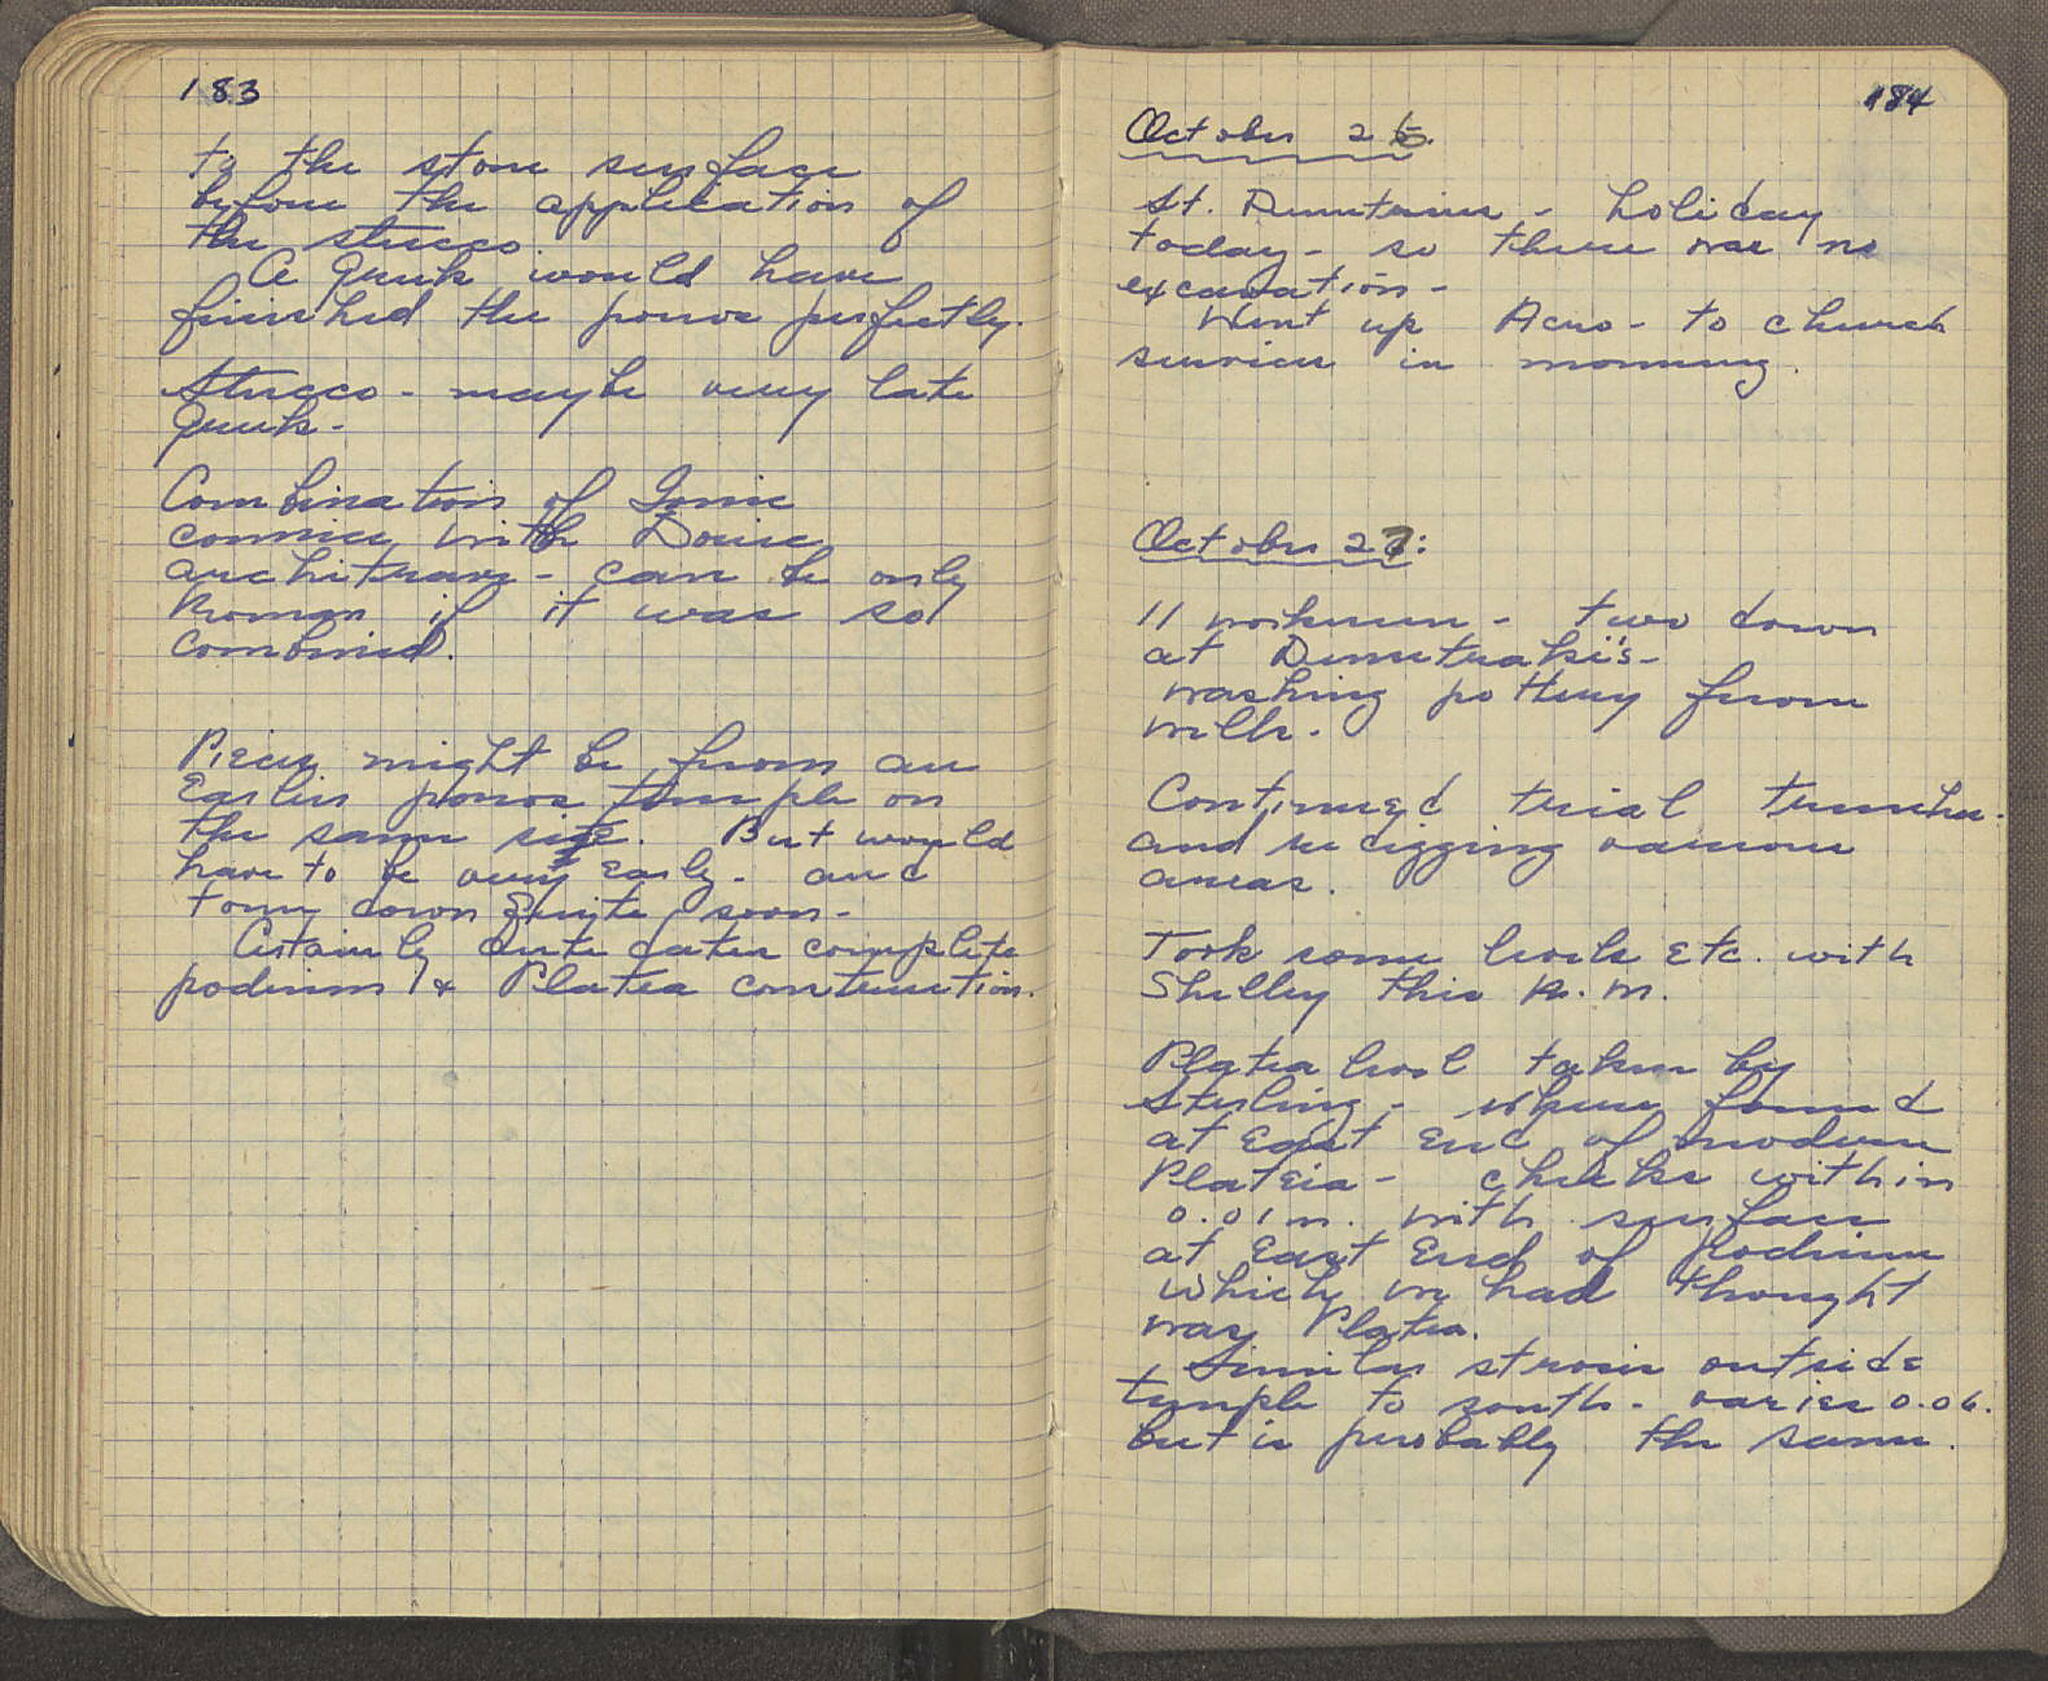 183
to the stone surface
before the application of
the stucco.
A Greek would have
finished the poros perfectly.
Stucco - maybe very late
Greek -
Combination of Ionic
cornice with Doric
architrave - can be only
Roman if it was so
combined.
Pieces might be from an
Earlier poros temple on
the same site. But would
have to be very Early - and
torn down quite soon -
Certainly antedates complete
podium & Platea construction.
184
October 26.
St. Demetrius - holiday
today - so there was no
excavation -
Went up Acro - to church
services in morning.
October 27:
11 workmen - two down
at Demetraki's -
washing pottery from
wells.
Continued trial trenches -
and redigging various
areas.
Took some levels Etc. with
Shelley this A.M.
Platea level taken by
Sterling - where found
at East End of modern
Plateia - checks within
0.01 m. with surface
at East End of Podium
which we had thought
was Platea.
Similar strosis outside
temple to south - varies 0.06.
but is probably the same.